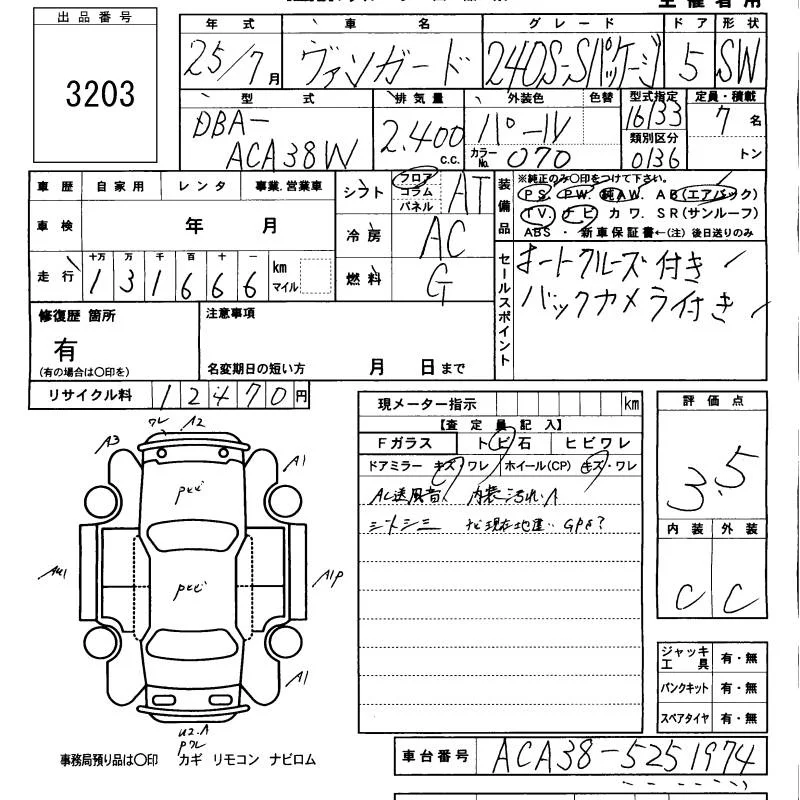 出品番号
3203
年式 車名 グレード ドア 形状
25/7月 ヴァンガード 240S-Sパッケージ 5 SW
型式 排気量 外装色 色替 型式指定 定員・積載
DBA-ACA38W 2.400 c.c. パール 16133 7名
カラーNo. 070 類別区分 0136 トン
車歴 自家用 レンタ 事業.営業車
車検 年 月
走行 十万 万 千 百 十 一
131666 km マイル
シフト フロア コラム パネル AT
冷房 AC
燃料 G
装備品
※純正のみ〇印をつけて下さい。
PS. PW. 純AW. AB(エアバック)
TV. ナビ カワ. SR(サンルーフ)
ABS ・ 新車保証書←(注) 後日送りのみ
セールスポイント
オートクルーズ付き
バックカメラ付き
修復歴 箇所
有
(有の場合は〇印を)
注意事項
名変期日の短い方 月 日まで
リサイクル料 12470円
現メーター指示 km
【査定員記入】
Fガラス トビ石 ヒビワレ
ドアミラー キズ・ワレ ホイール(CP) キズ・ワレ
AC送風音 内装汚れ
シートシミ ナビ現在地違 GPS?
評価点
3.5
内装 外装
C C
ジャッキ工具 有・無
パンクキット 有・無
スペアタイヤ 有・無
ワレ A2
A3 A1
Pトビ
A1P
Pトビ
A1
Pワレ
事務局預り品は〇印 カギ リモコン ナビロム
車台番号 ACA38-5251974